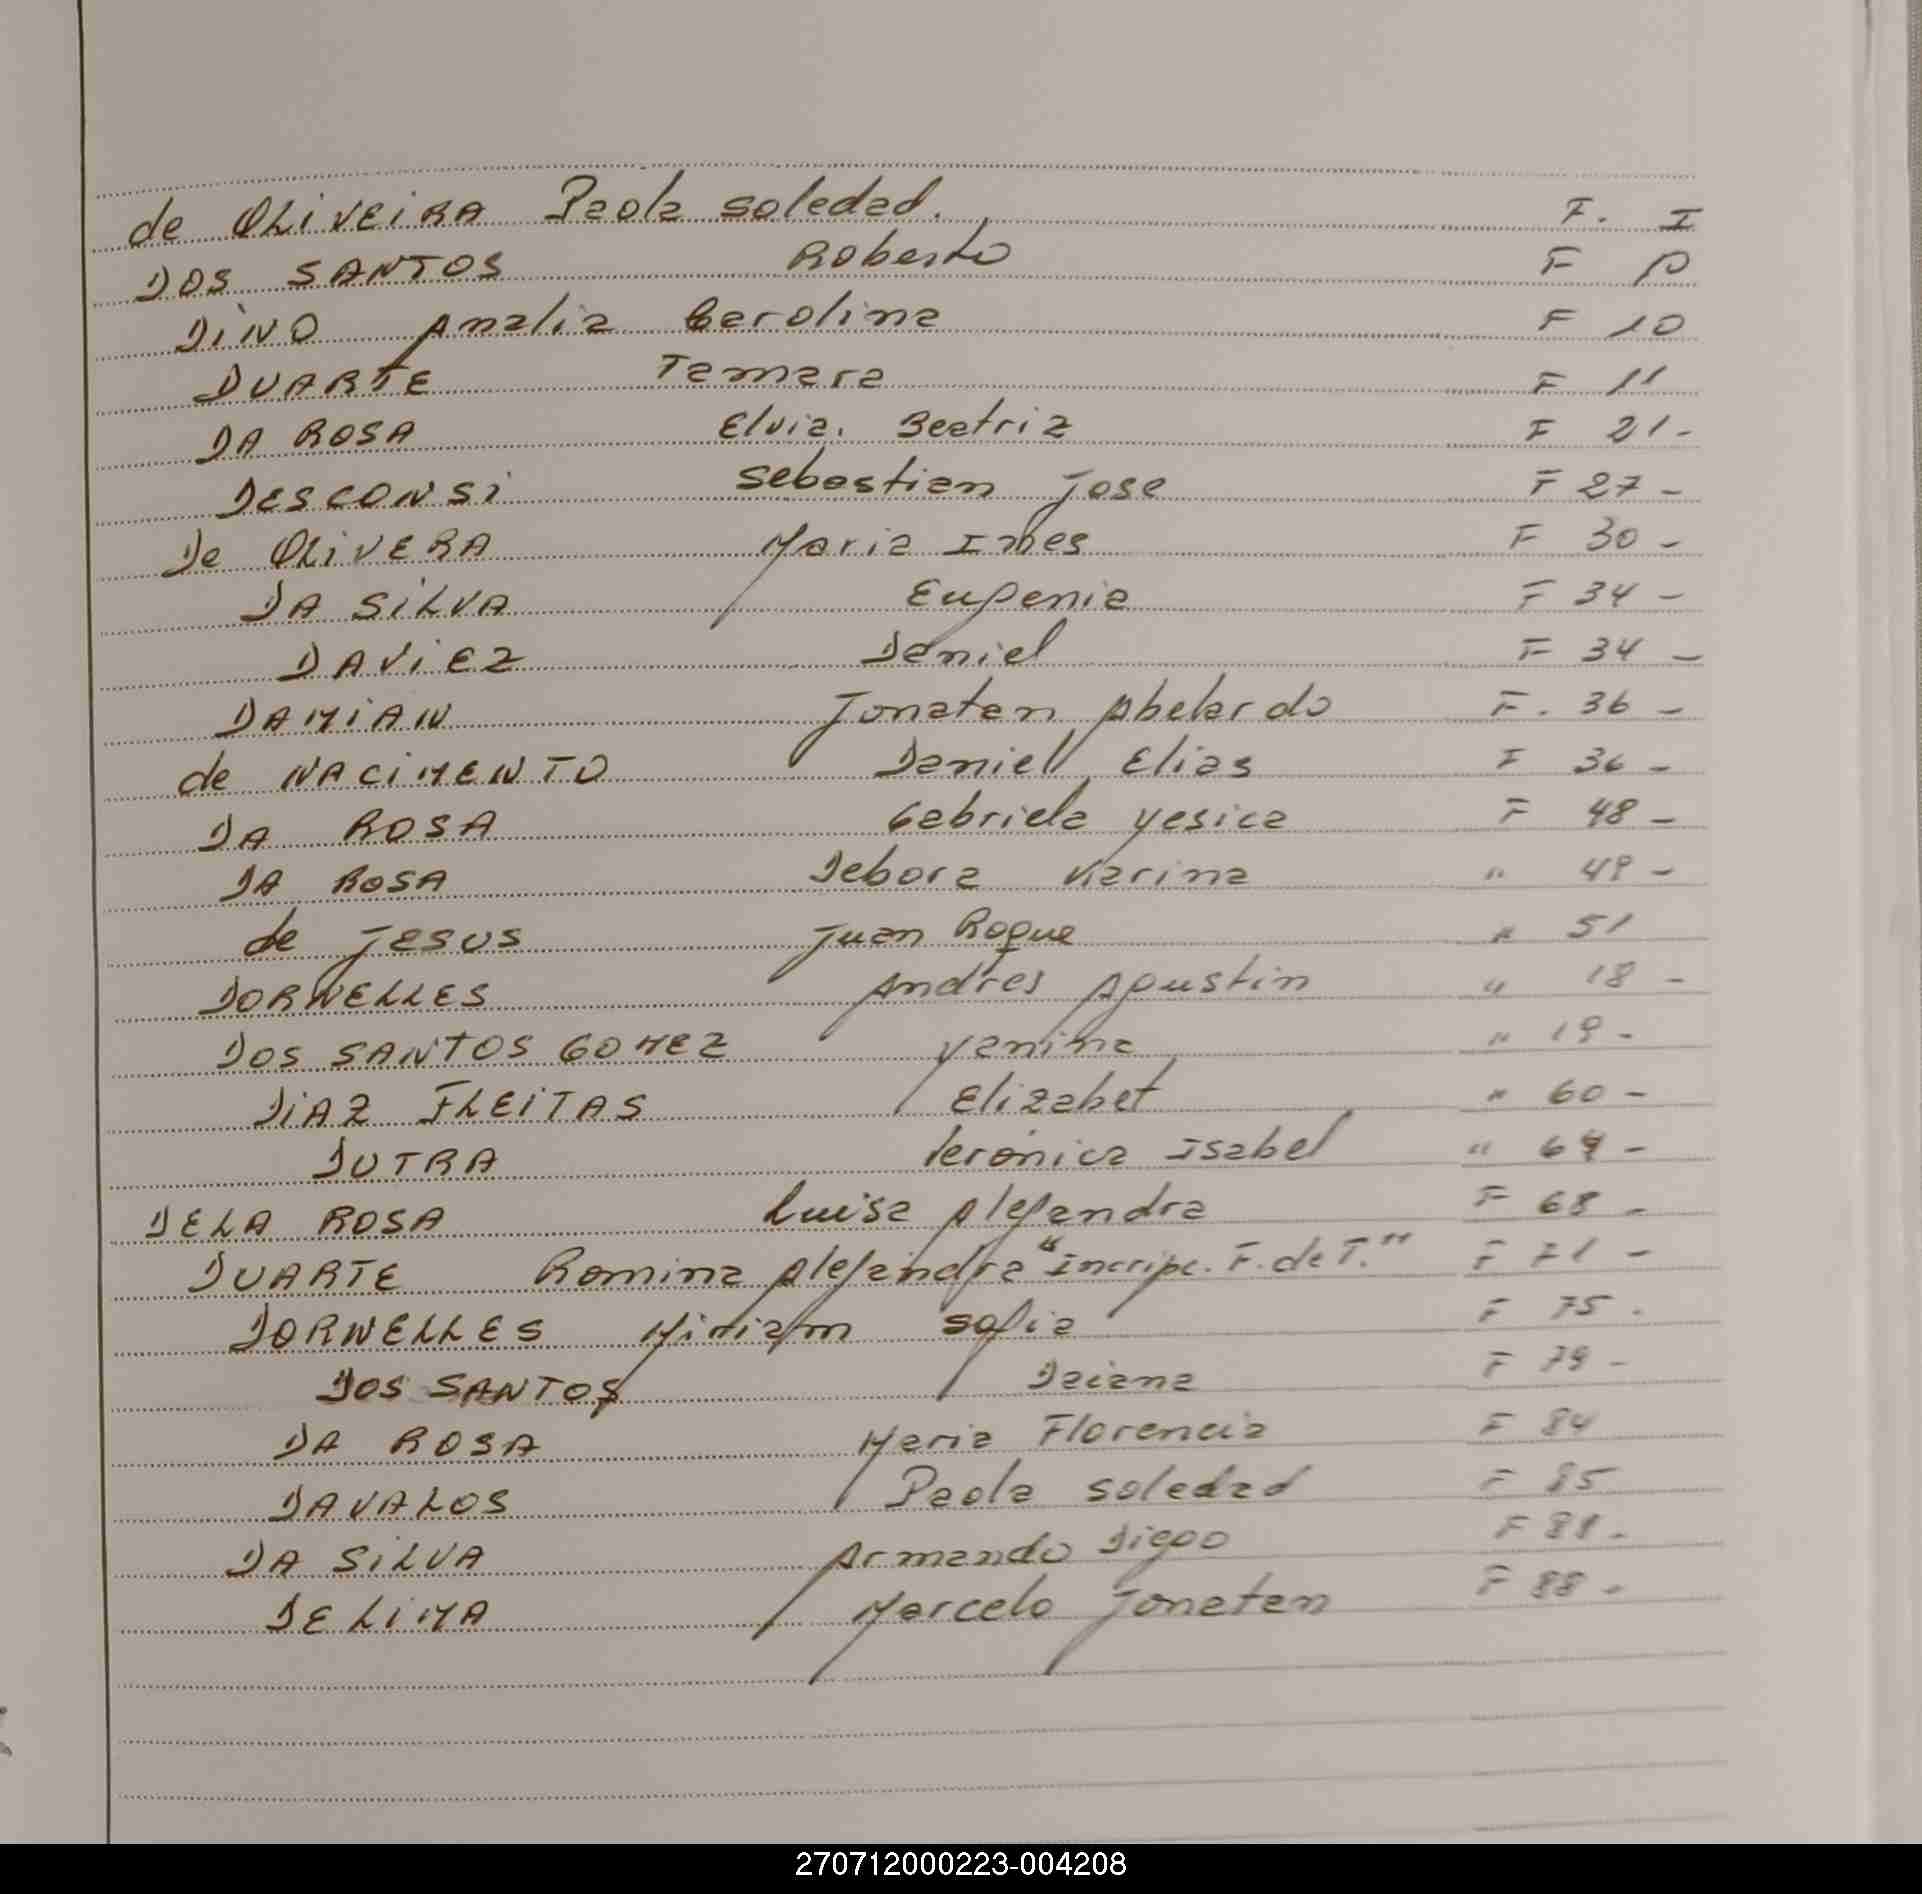 de OLiVEiRA Paola soledad. F. I
DOS SANTOS Roberto F
DiNO Analia Carolina F 10
DUARTE Tamara F 11
DA ROSA Elvia. Beatriz F 21-
DESCONSi Sebastian Jose F 27-
De OLiVERA Maria Ines F 30-
DA SiLVA Eugenia F 34-
DAViEZ Daniel F 34-
DAMiAN Jonatan Abelardo F. 36-
de NACiMENTO Daniel Elias F 36-
DA ROSA Gabriela Yesica F 48-
DA ROSA Debora Karina " 49-
de Jesus Juan Roque " 51
DORNELLES Andres Agustin " 18-
DOS SANTOS GOMEZ Yanina " 19-
DiAZ FLEiTAS Elizabet " 60-
DUTRA Verónica Isabel "
DELA ROSA Luisa Alejandra F 68-
DUARTE Romina Alejandra "Incripc. F. de T." F 71-
DORNELLES Miriam Sofia F 75.
DOS SANTOS Daiana F 79-
DA ROSA Maria Florencia F 84
DAVALOS Paola Soledad F 85
DA SiLVA Armando Diego F
DE LiMA Marcelo Jonatan F 88-
270712000223-004208